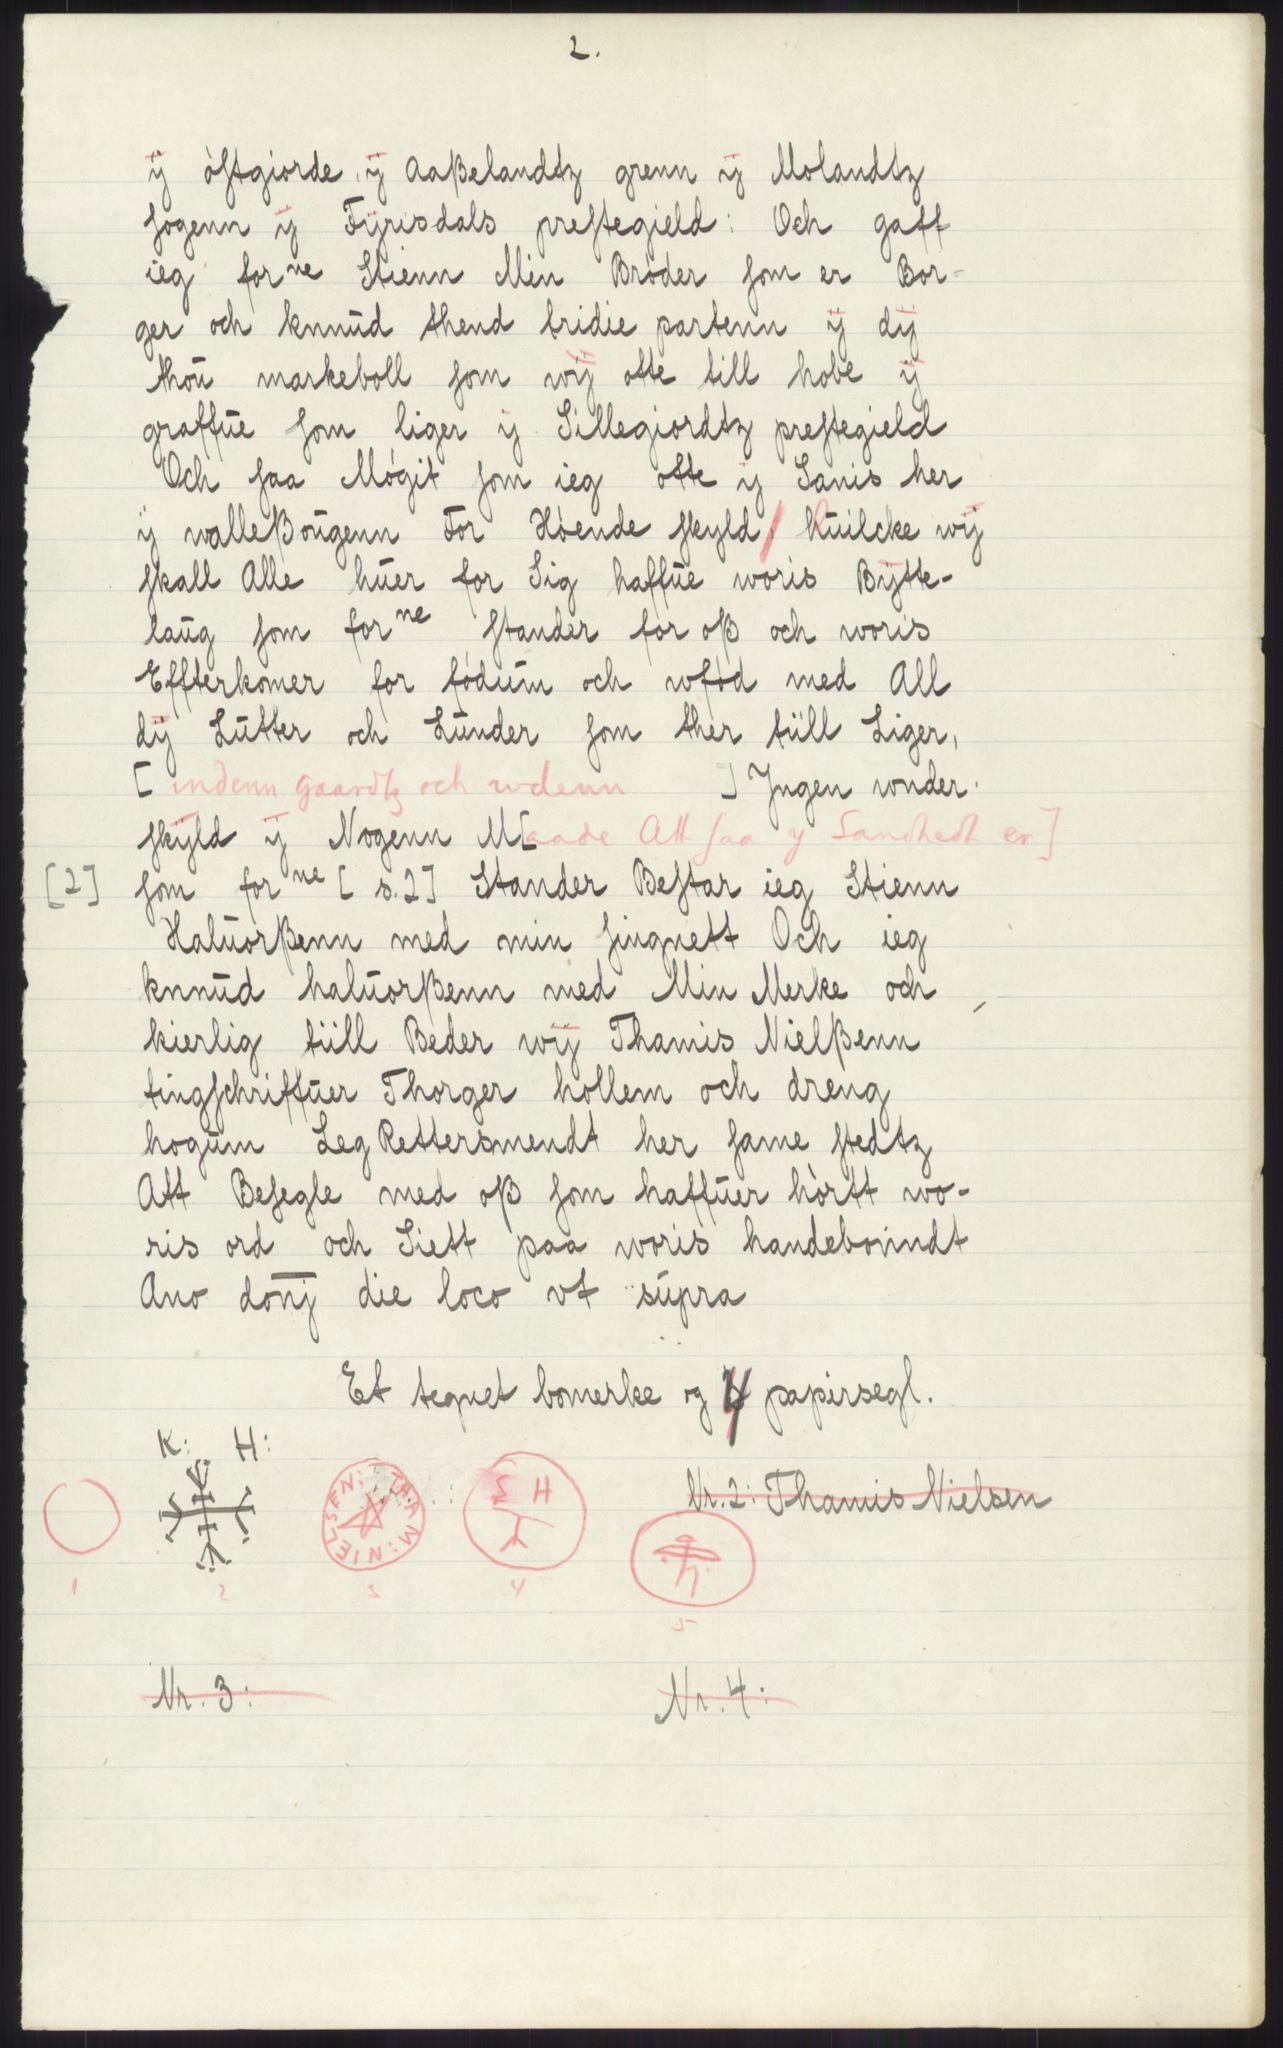 2.
ÿ òstgiorde ÿ Aaßelandtz grenn ÿ Molandtz
sogenn ÿ Fÿrisdals prestegield: Och gaff
ieg forne Stienn Min Broder som er Bor-
ger och knnūd thend tridie partenn ÿ dÿ
thoū markeboll som wÿ otte till hobe ÿ
graffūe som liger ÿ Sillegiordtz prestegield
Och saa Mògit som ieg otte ÿ Sanis her
ÿ walleßoūgenn For Hòende skyld, Huilcke wÿ
skall Alle hūer for Sig haffūe woris Bÿtte-
laūg som forne stander for oß och woris
Effterkomer for fòdūm och wfòd med All
dÿ Lūtter och Lūnder som ther tiill Liger,
[ indenn gaardtz och wdenn ] Jngen wnder-
skÿld ÿ Nogenn M[aade Att saa y Sandhedt er]
[2] som forne [ s. 2] Stander Bestar ieg Stienn
Halūorßenn med min singnett Och ieg
knnūd halūorßenn med Min Merke och
kierlig tiill Beder wÿ Thamis Nielßenn
tingschriffūer Thorger hollem och dreng
hogūm Leg Rettersmendt her same stedtz
Att Besegle med oß som haffūer hòrtt wo-
ris ord och Siett paa woris handebonndt
Ano donj die loco vt sūpra
Et tegnet bomerke og 4 papirsegl.
K: H:
THAM: NIELSEN:
S H
Nr. 2: Thamis Nielsen
1 2 3 4 5
Nr. 3: Nr. 4: